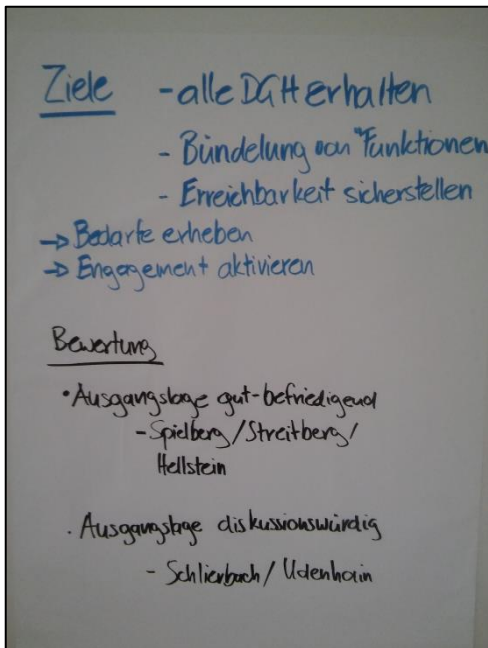 Ziele - alle DGH erhalten
- Bündelung von "Funktionen
- Erreichbarkeit sicherstellen
→ Bedarfe erheben
→ Engagement aktivieren
Bewertung
• Ausgangslage gut-befriedigend
- Spielberg/Streitberg/
Hellstein
• Ausgangslage diskussionswürdig
- Schlierbach/Udenhain